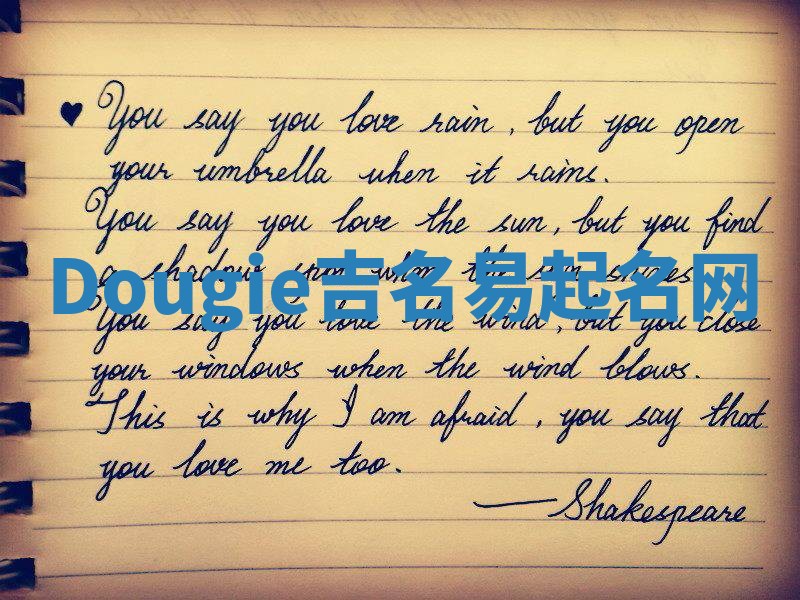 ♥ You say you love rain, but you open
your umbrella when it rains.
You say you love the sun, but you find
a shadow spot when the sun shines.
Dougie吉名易起名网
You say you love the wind, but you close
your windows when the wind blows.
This is why I am afraid, you say that
you love me too.
— Shakespeare